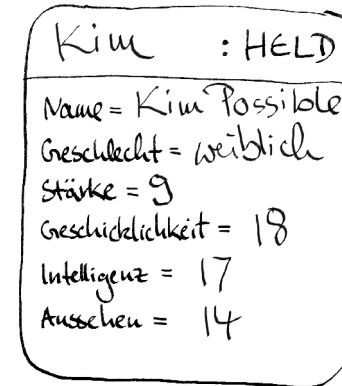 Kim : HELD
Name = Kim Possible
Geschlecht = weiblich
Stärke = 9
Geschicklichkeit = 18
Intelligenz = 17
Aussehen = 14